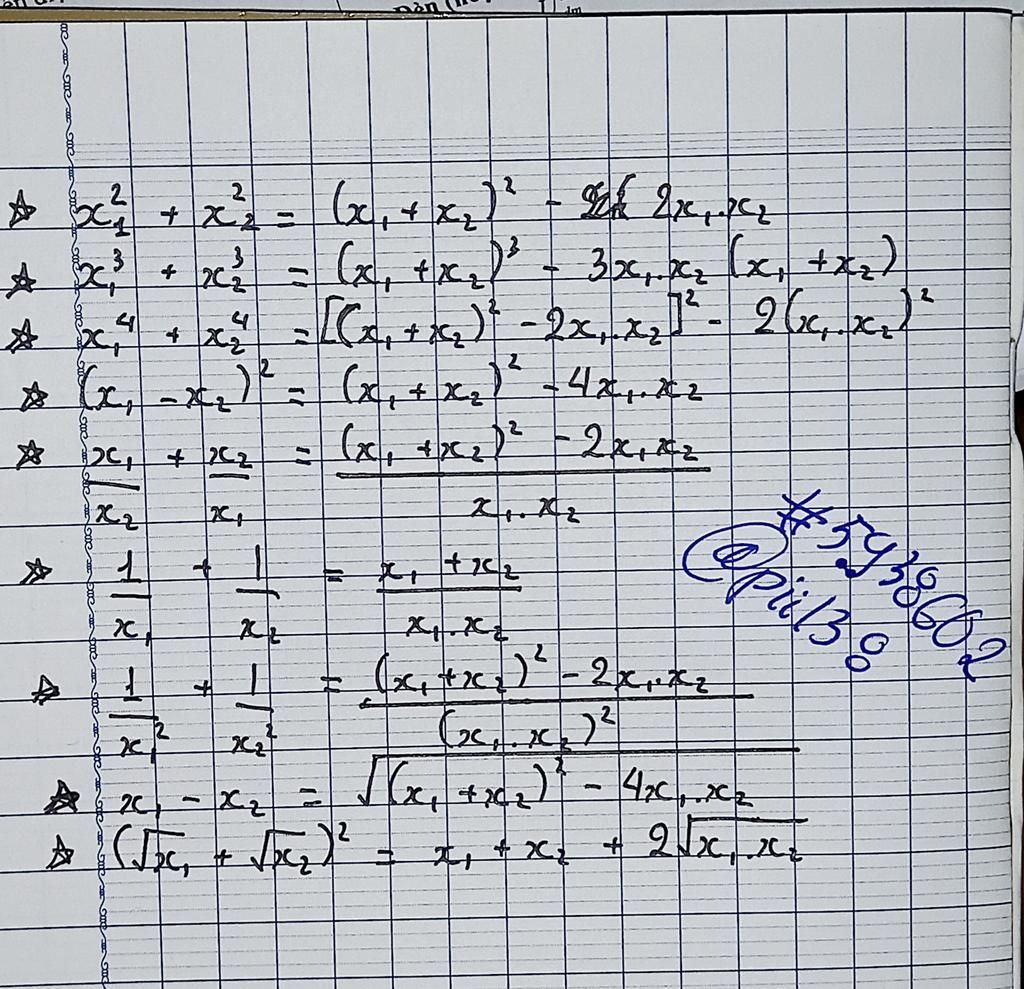 ☆ x₁² + x₂² = (x₁ + x₂)² - 2x₁.x₂
☆ x₁³ + x₂³ = (x₁ + x₂)³ - 3x₁.x₂ (x₁ + x₂)
☆ x₁⁴ + x₂⁴ = [(x₁ + x₂)² - 2x₁.x₂]² - 2(x₁.x₂)²
☆ (x₁ - x₂)² = (x₁ + x₂)² - 4x₁.x₂
☆ x₁/x₂ + x₂/x₁ = ((x₁ + x₂)² - 2x₁x₂)/(x₁.x₂)
☆ 1/x₁ + 1/x₂ = (x₁ + x₂)/(x₁.x₂)
☆ 1/x₁² + 1/x₂² = ((x₁ + x₂)² - 2x₁.x₂)/(x₁.x₂)²
☆ x₁ - x₂ = √((x₁ + x₂)² - 4x₁.x₂)
☆ (√x₁ + √x₂)² = x₁ + x₂ + 2√(x₁.x₂)